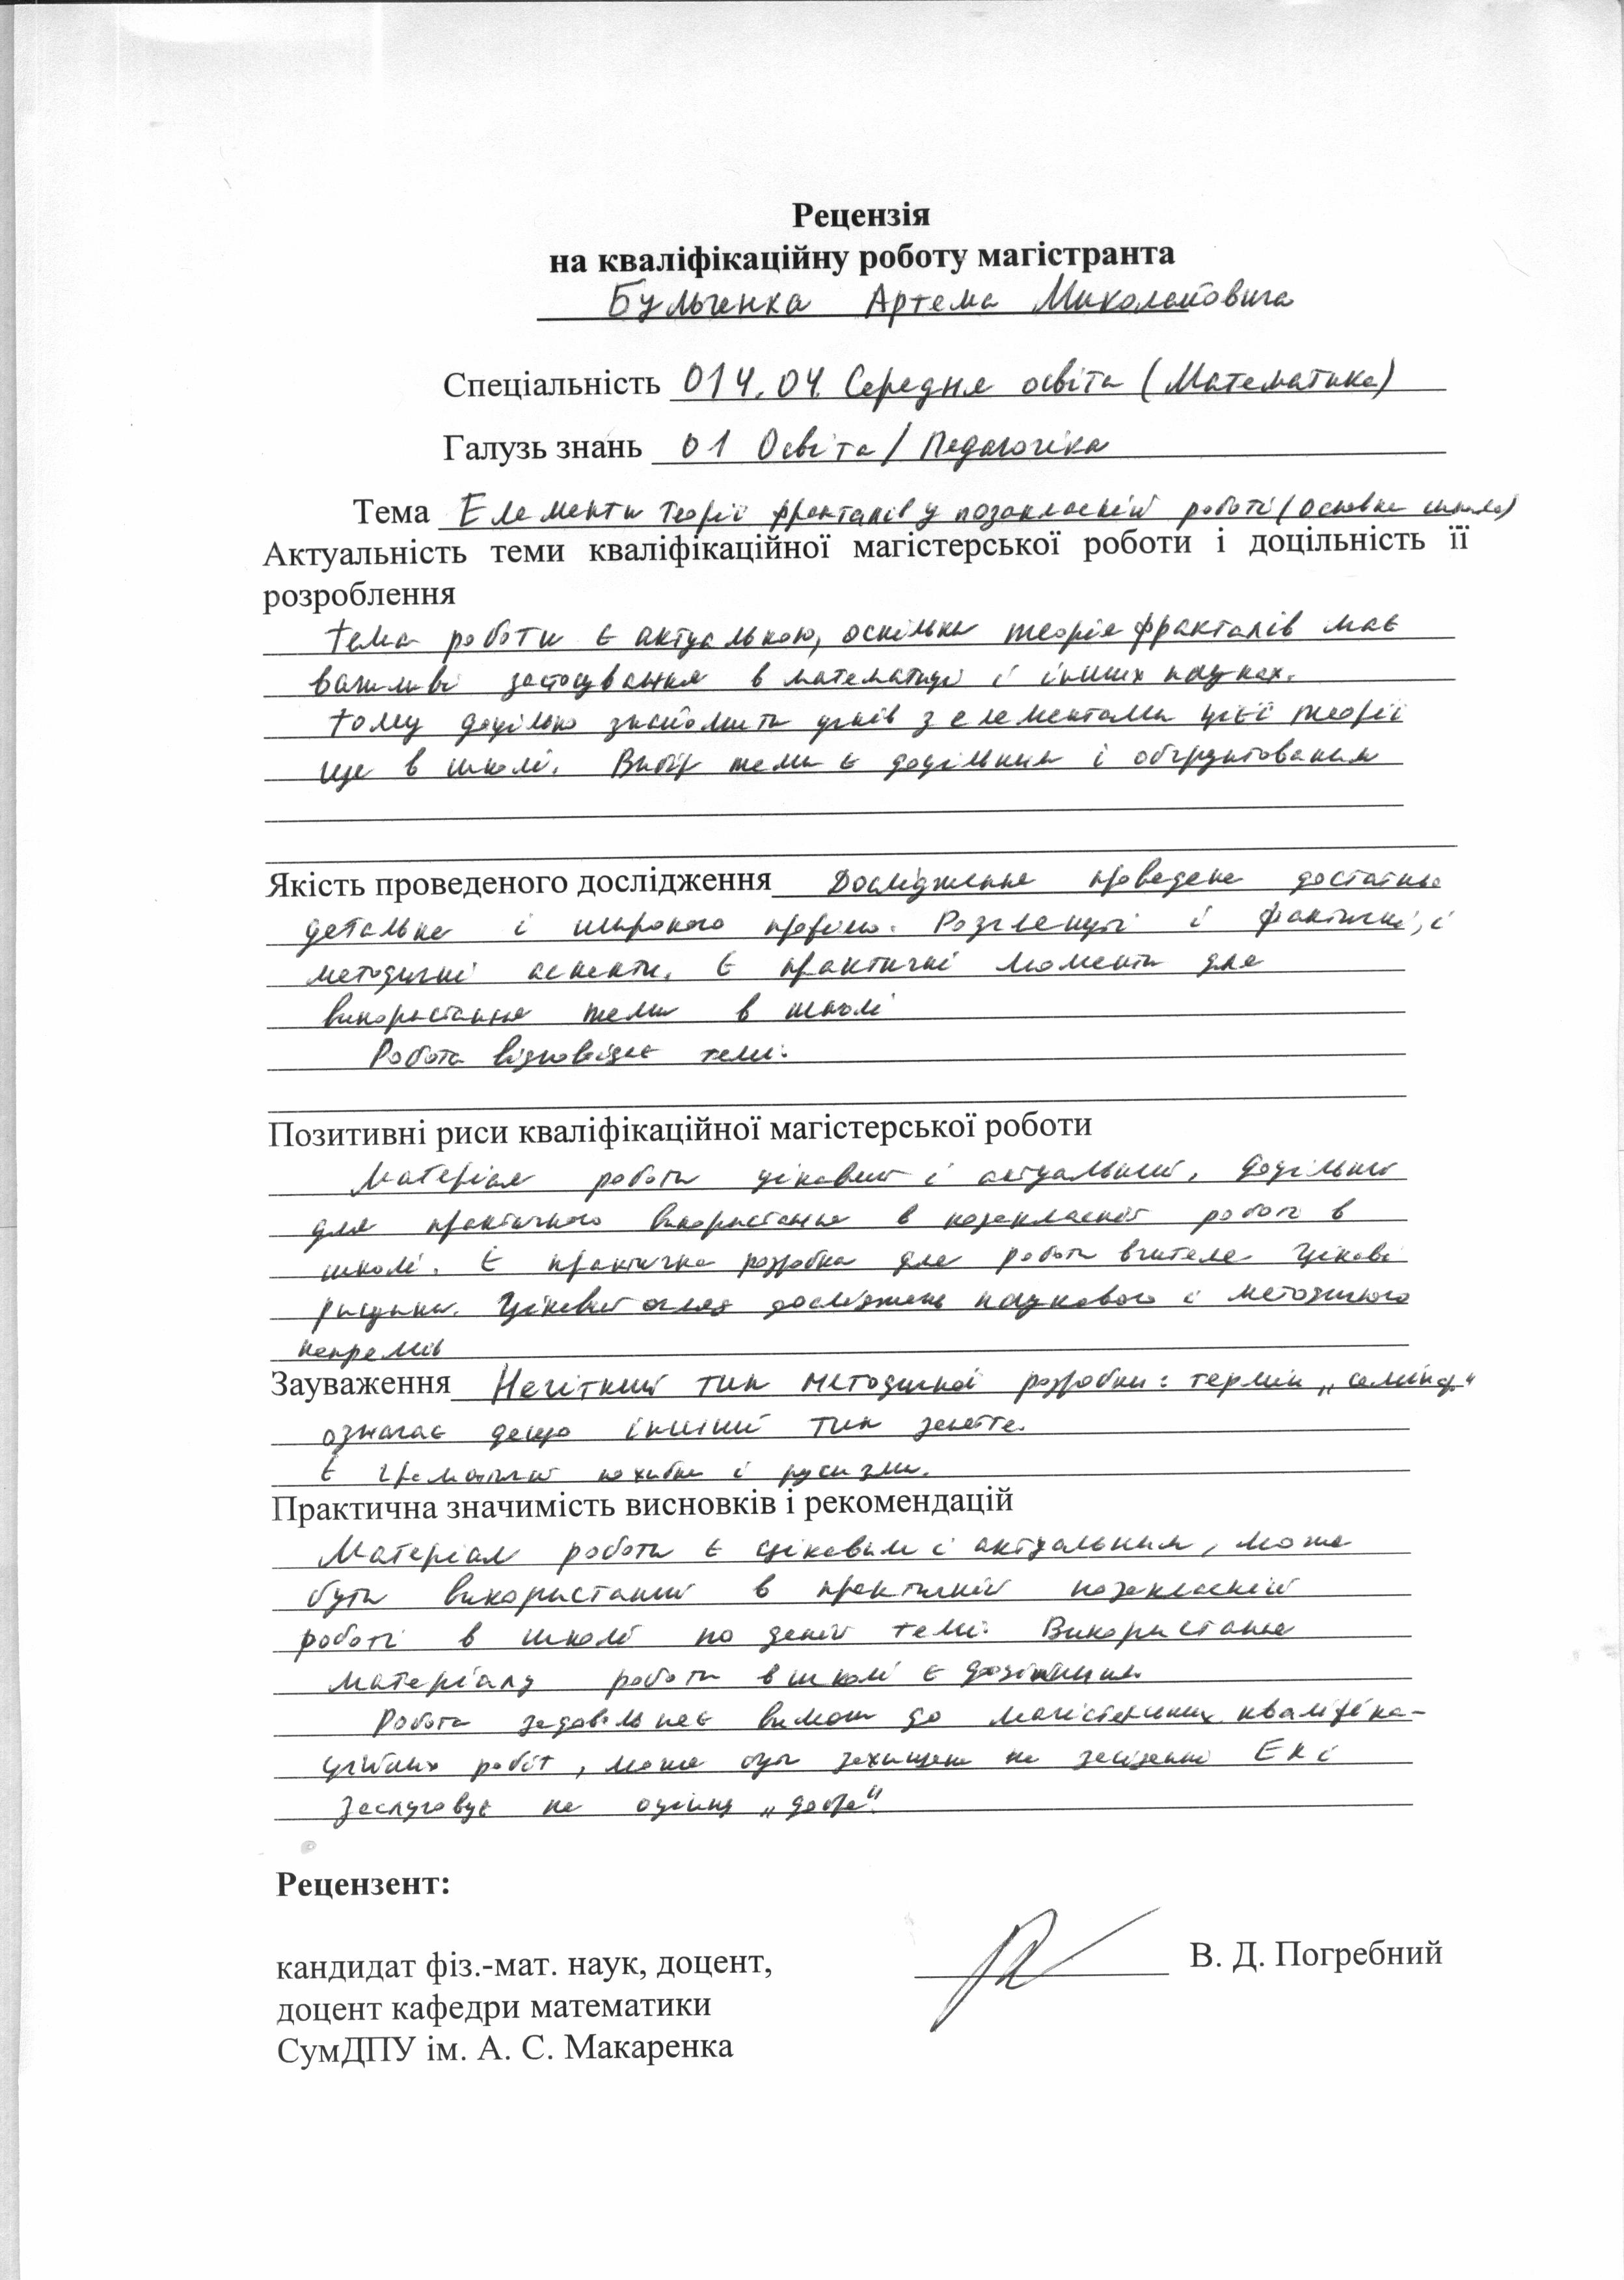 Рецензія
на кваліфікаційну роботу магістранта
Бульченка Артема Миколайовича
Спеціальність 014.04 Середня освіта (Математика)
Галузь знань 01 Освіта / Педагогіка
Тема Елементи теорії фракталів у позакласній роботі (основна школа)
Актуальність теми кваліфікаційної магістерської роботи і доцільність її
розроблення
Тема роботи є актуальною, оскільки теорія фракталів має
важливі застосування в математиці і інших науках.
Тому доцільно знайомити учнів з елементами цієї теорії
ще в школі. Вибір теми є доцільним і обґрунтованим
Якість проведеного дослідження Дослідження проведене достатньо
детально і широкого профілю. Розглянуті і фактичні, і
методичні аспекти. Є практичні моменти для
використання теми в школі
Робота відповідає темі.
Позитивні риси кваліфікаційної магістерської роботи
Матеріал роботи цікавий і актуальний, доцільний
для практичного використання в позакласній роботі в
школі. Є практична розробка для роботи вчителя. Цікаві
рисунки. Цікавий огляд досліджень наукового і методичного
напрямів
Зауваження Нечіткий тип методичної розробки: термін „семінар“
означає дещо інший тип заняття.
Є граматичні похибки і русизми.
Практична значимість висновків і рекомендацій
Матеріал роботи є цікавим і актуальним, може
бути використаний в практичній позакласній
роботі в школі по даній темі. Використання
матеріалу роботи в школі є доцільним
Робота задовольняє вимоги до магістерських кваліфіка-
ційних робіт, може бути захищена на засіданні ЕК і
заслуговує на оцінку „добре“.
Рецензент:
кандидат фіз.-мат. наук, доцент,
доцент кафедри математики
СумДПУ ім. А. С. Макаренка
В. Д. Погребний